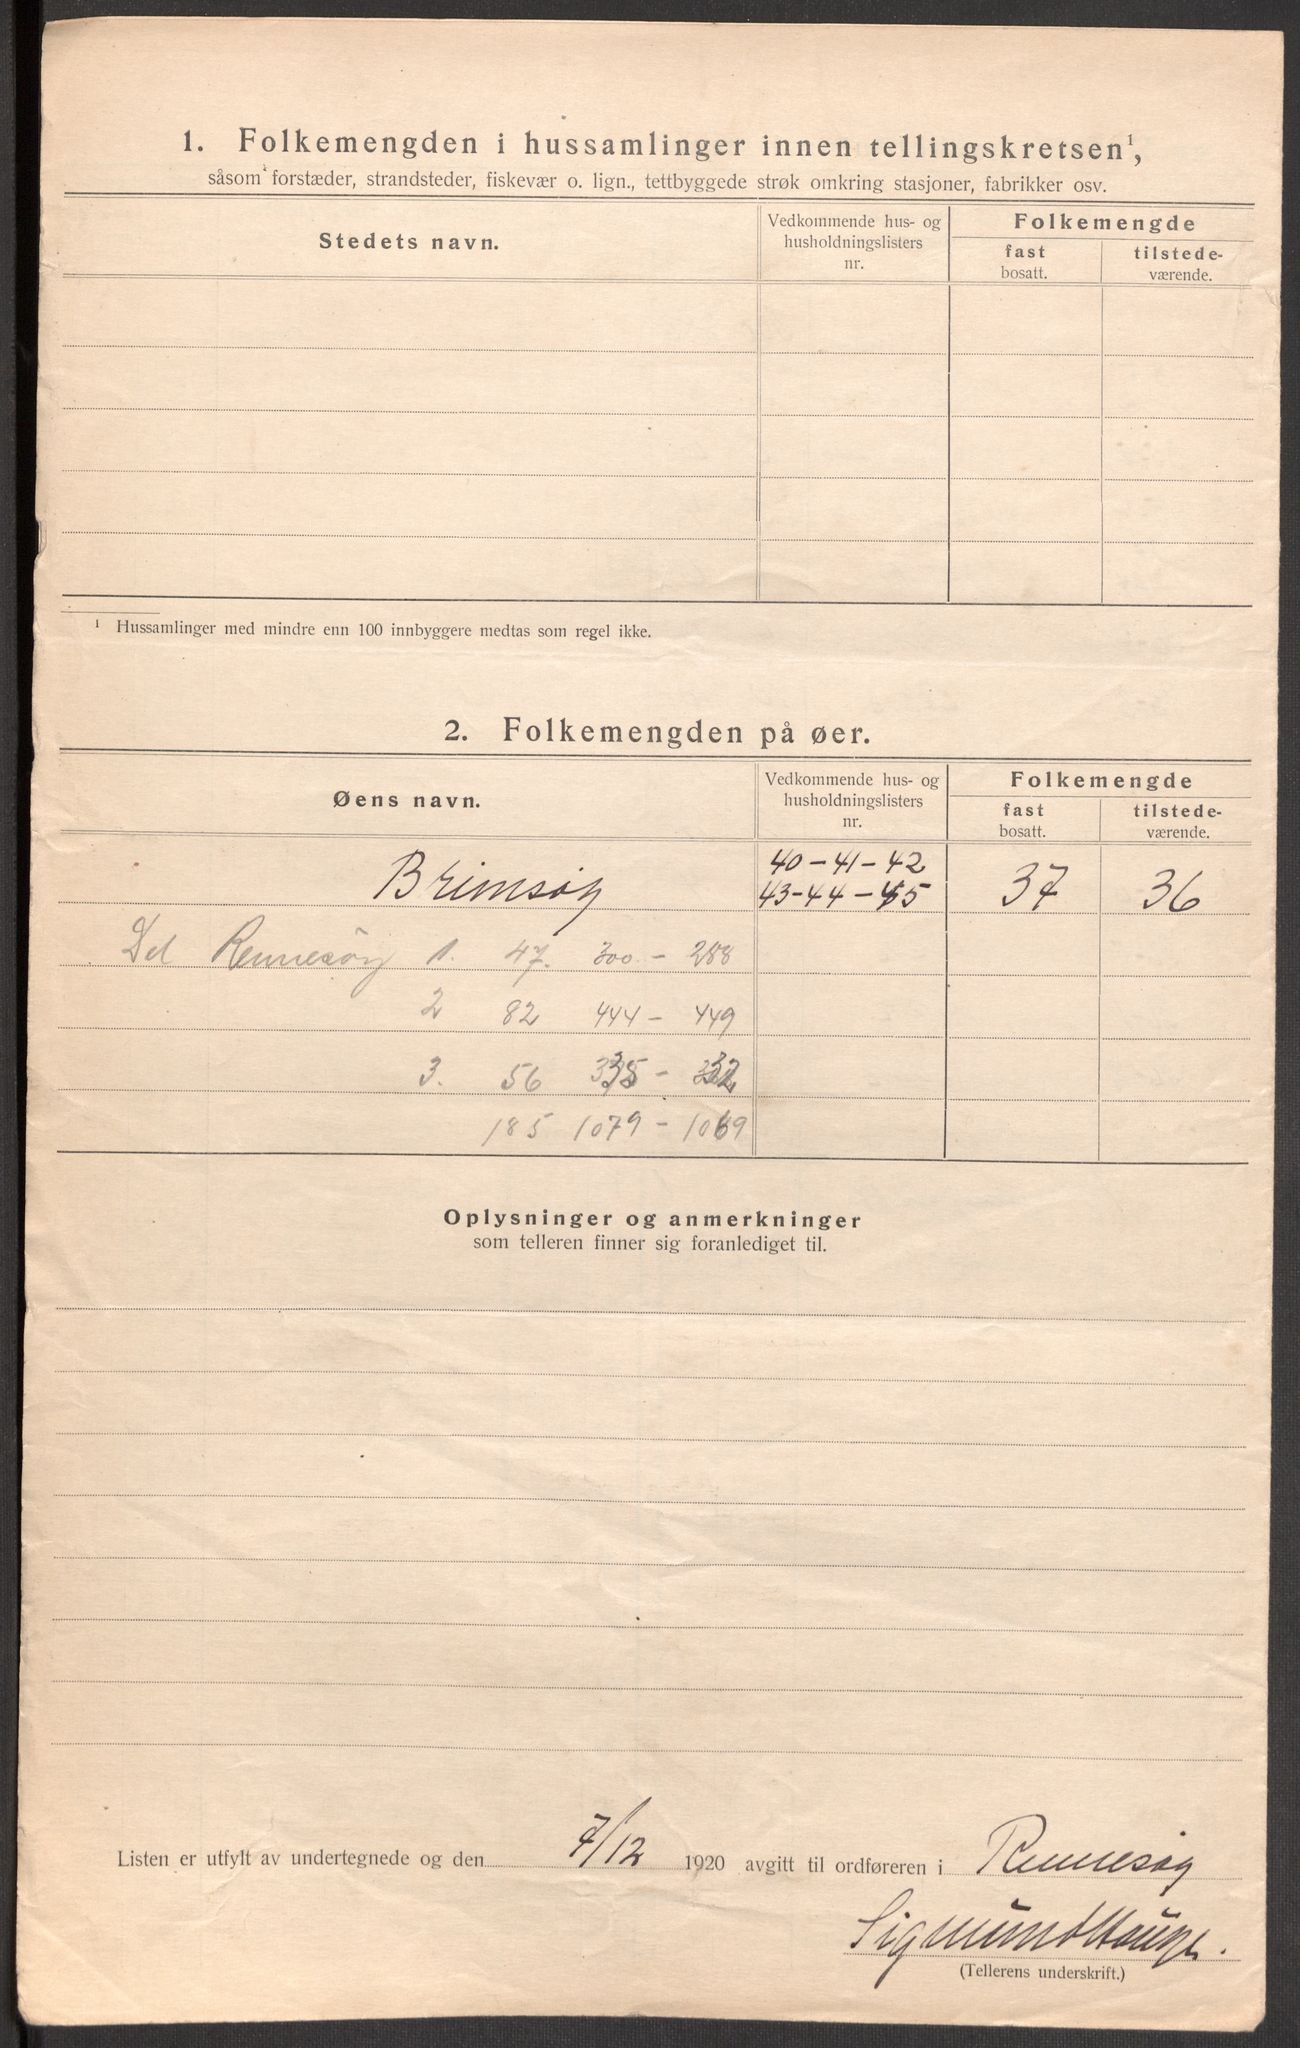 1. Folkemengden i hussamlinger innen tellingskretsen¹,
såsom forstæder, strandsteder, fiskevær o. lign., tettbyggede strøk omkring stasjoner, fabrikker osv.
Stedets navn.
Vedkommende hus- og husholdningslisters nr.
Folkemengde
fast bosatt.
tilstede- værende.
¹ Hussamlinger med mindre enn 100 innbyggere medtas som regel ikke.
2. Folkemengden på øer.
Øens navn.
Vedkommende hus- og husholdningslisters nr.
Folkemengde
fast bosatt.
tilstede- værende.
Brimsøy 40-41-42 43-44-45 37 36
Del Rennesøy 1. 47. 300 - 288
2 82 444 - 449
3. 56 335 - 332
185 1079 - 1069
Oplysninger og anmerkninger
som telleren finner sig foranlediget til.
Listen er utfylt av undertegnede og den 7/12 1920 avgitt til ordføreren i Rennesøy
Sigmund Hauge.
(Tellerens underskrift.)